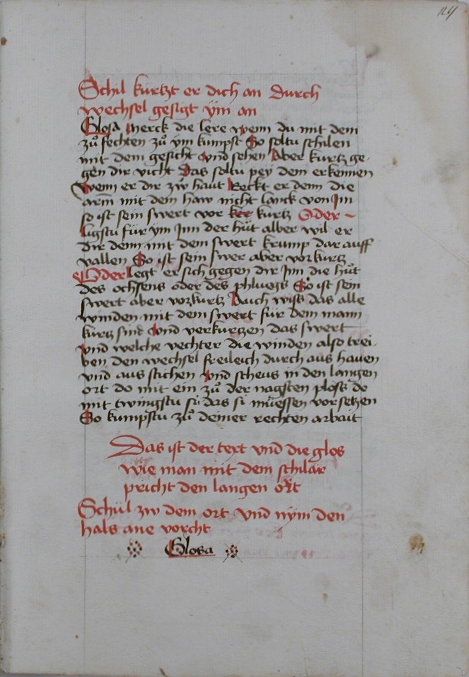 124
Schil kurtzt er dich an Durch
wechsel gesigt ym an
Glosa Merck die lere wenn du mit dem
zů fechten zů ym kumpst So soltu schilen
mit dem gesicht Vnd sehen Aber kurtz ge
gen dir vicht Das soltu pey dem erkennen
Wenn er dir zw haut Reckt er denn die
arm mit dem haw nicht lanck von Im
so ist sein swert vor kurtz Oder ~
ligstu für ym Inn der hůt alber wil er
dir denn mit dem swert krump dar auff
vallen So ist sein swer aber vorkurtz
Oder legt er sich gegen dir Inn die hůt
des ochsens oder des pfluegs So ist sein
swert aber vorkurtz Auch wiss das alle
winden mit dem swert für dem mann
kurtz sind Vnd verkurtzen das swert
Vnd welche vechter die winden also trei
ben den wechsel freileich durch aus hauen
vnd aus stichen Vnd scheus in den langen
ort do mit ein zů der nagsten plöss do
mit twingstu si das si müessen vorsetzen
So kumpstu zů deiner rechten arbait
Das ist der text vnd die glos
wie man mit dem schilär
pricht den langen ort
Schil zw dem ort Vnd nym den
hals ane vorcht
Glosa